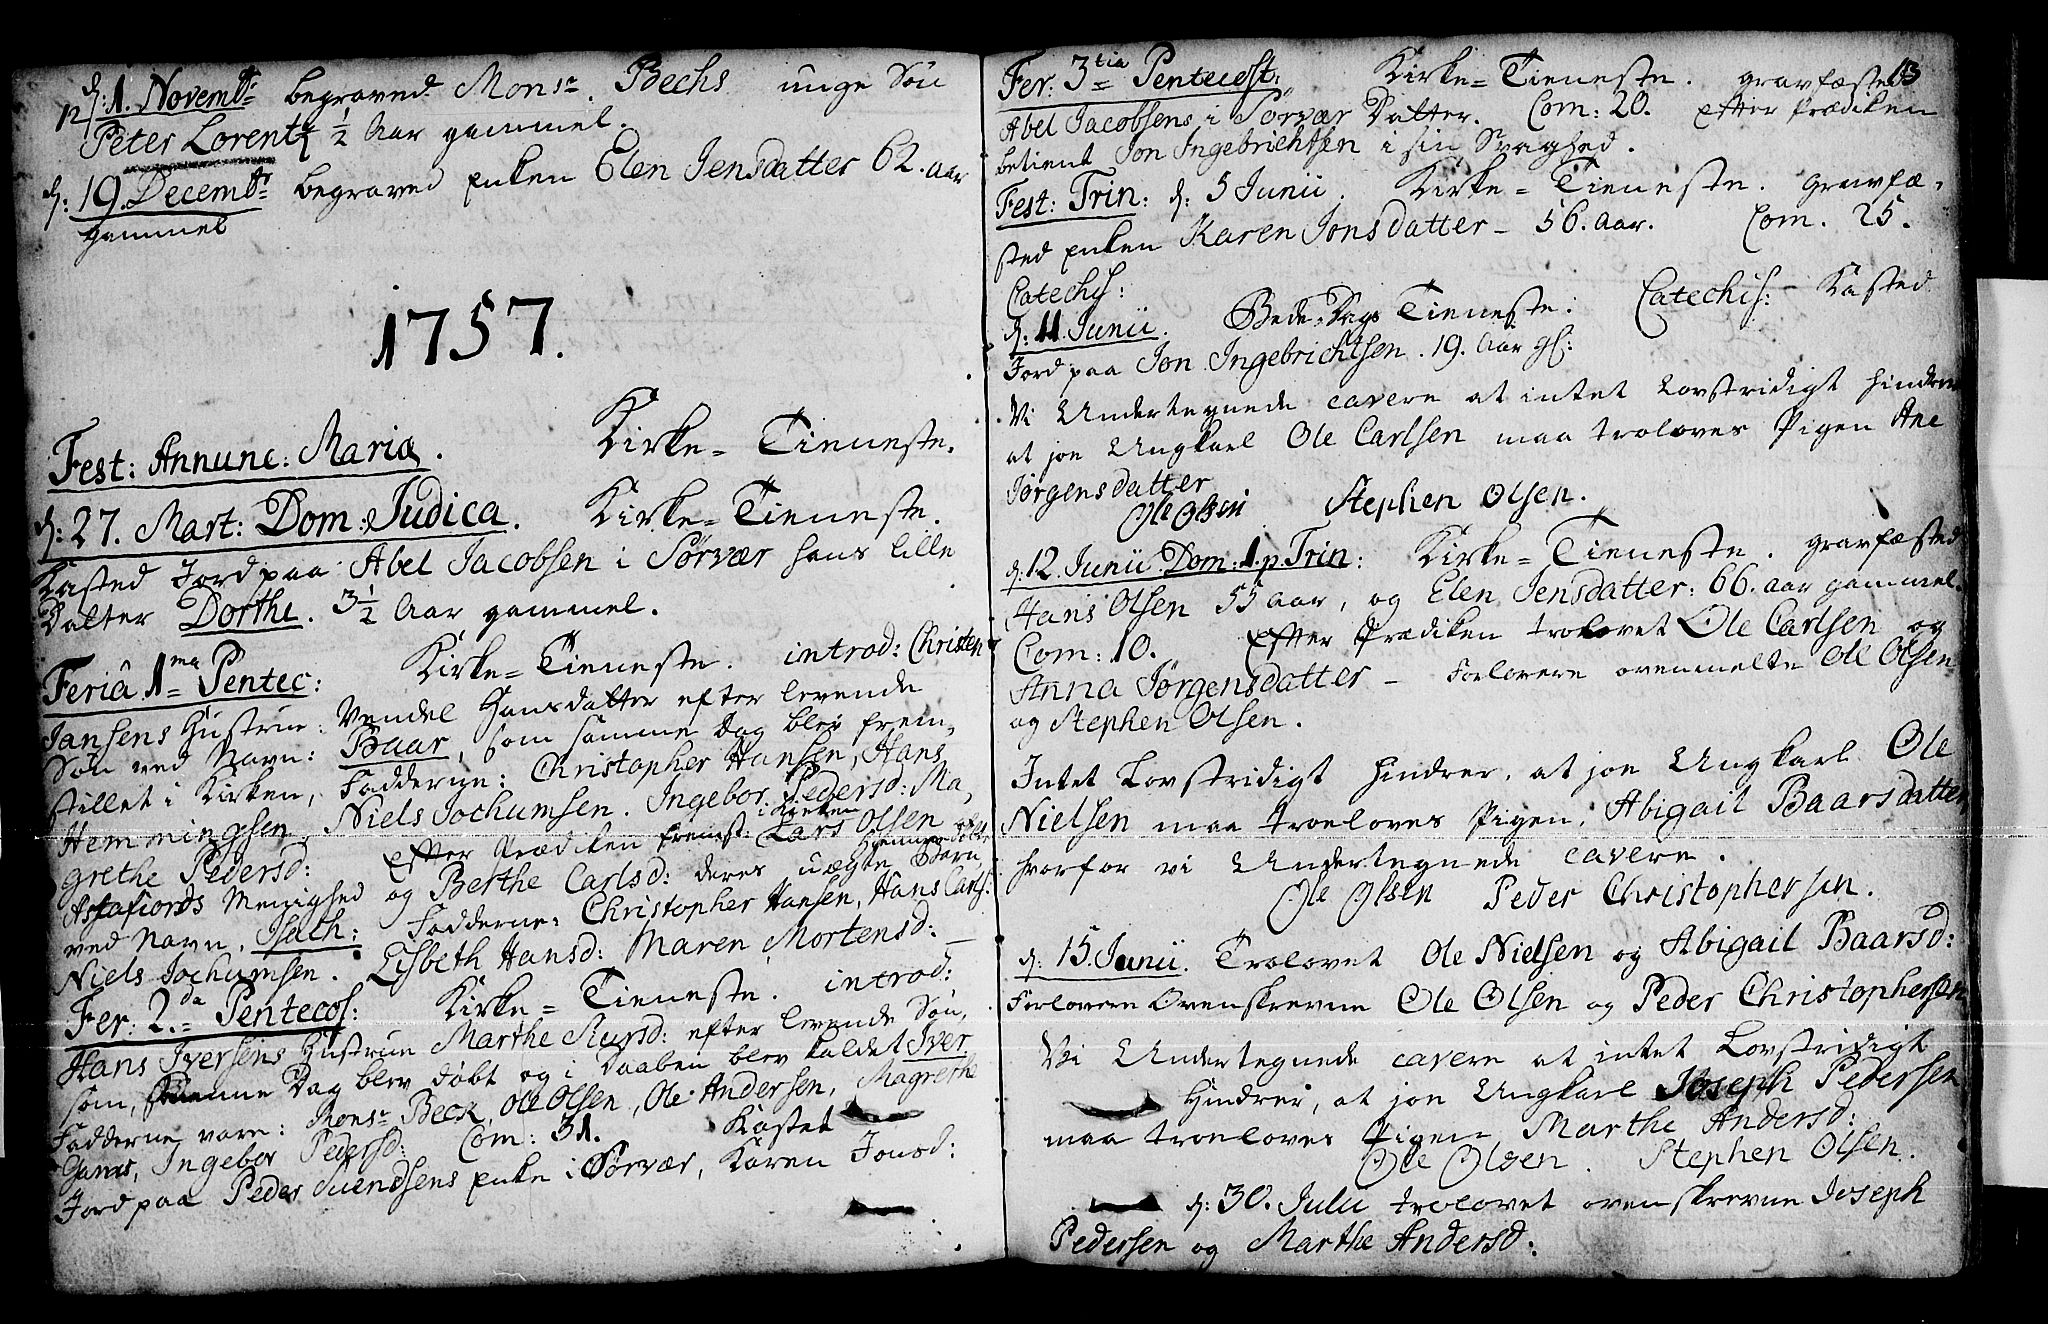 12
d: 1. Novembr: begraved Monsr. Bechs unge Søn
Peter Lorentz 1/2 Aar gammel.
d: 19. Decembr: begraved Enken Elen Jensdatter 62. aar
gammel
1757.
Fest: Annunc: Mariæ. Kirke-Tieneste.
d: 27. Mart: Dom: Judica. Kirke-Tieneste.
Kasted Jord paa Abel Jacobsen i Sørvær hans lille
Datter Dorthe. 3 1/2 Aar gammel.
Feriâ 1ma Pentec: Kirke-Tieneste. introd: Christen
Jansens Hustrue: Vendel Hansdatter efter levende
Søn ved Navn: Baar, som samme Dag blev frem-
stillet i Kirken, Fadderne: Christopher Hansen, Hans
Hemmingsen, Niels Jochumsen. Ingebor Pedersd: Ma-
grethe Pedersd: Efter Prædiken fremst: i Kirken Lars Olsen af
Astafiords Menighed og Berthe Carlsd: deres uægte Barn,
ved Navn, Isach: Fadderne: Christopher Hansen, Hans Carls:
Niels Jochumsen. Lisbeth Hansd: Maren Mortensd:
Fer: 2da Pentecos: Kirke-Tieneste. introd:
Hans Iversens Hustrue Marthe Sivrsd: efter levende Søn,
som, samme Dag blev døbt og i Daaben blev kaldet Iver
Fadderne vare: Monsr Beck, Ole Olsen, Ole Andersen, Magrethe
Ingebor Pedersd: Com: 31. Kastet
Jord paa Peder Suendsens Enke i Sørvær, Karen Jonsd:
13
Fer: 3tia Pentecost: Kirke-Tieneste. gravfæsted
Abel Jacobsens i Sørvær Datter. Com: 20. Efter Prædiken
betient Jon Ingebrichtsen i sin Svaghed.
Fest: Trin: d: 5 Junii. Kirke-Tieneste. gravfæ-
sted Enken Karen Jonsdatter - 56. Aar. Com. 25.
Catechis:
d: 11 Junii. Bede-Dags Tieneste: Catechis: - Kasted
Jord paa Jon Ingebrichtsen. 19. Aar gl:
Vi Undertegnede cavere at intet Lovstridigt hindrer
at jo Ungkarl Ole Carlsen maa troloves Pigen Ane
Jørgensdatter
Ole Olsen Stephen Olsen.
d: 12. Junii Dom: 1. p. Trin: Kirke-Tieneste. gravfæsted
Hans Olsen 55 aar, og Elen Jensdatter: 66. aar gammel.
Com: 10. Efter Prædiken trolovet Ole Carlsen og
Anna Jørgensdatter - Forlovere ovenmelte Ole Olsen
og Stephen Olsen.
Intet Lovstridigt hindrer, at jo Ungkarl Ole
Nielsen maa troeloves Pigen, Abigail Baarsdatter
hvorfor vi Undertegnede cavere.
Ole Olsen Peder Christophersen.
d: 15. Junii. Trolovet Ole Nielsen og Abigail Baarsd:
Forlovere Ovenskrevne Ole Olsen og Peder Christophersen
Vi Undertegnede cavere at intet Lovstridigt
Hindrer, at jo Ungkarl Joseph Pedersen
maa troeloves Pigen Marthe Andersd:
Ole Olsen. Stephen Olsen.
d: 30. Julii trolovet ovenskrevne Joseph
Pedersen og Marthe Andersd: